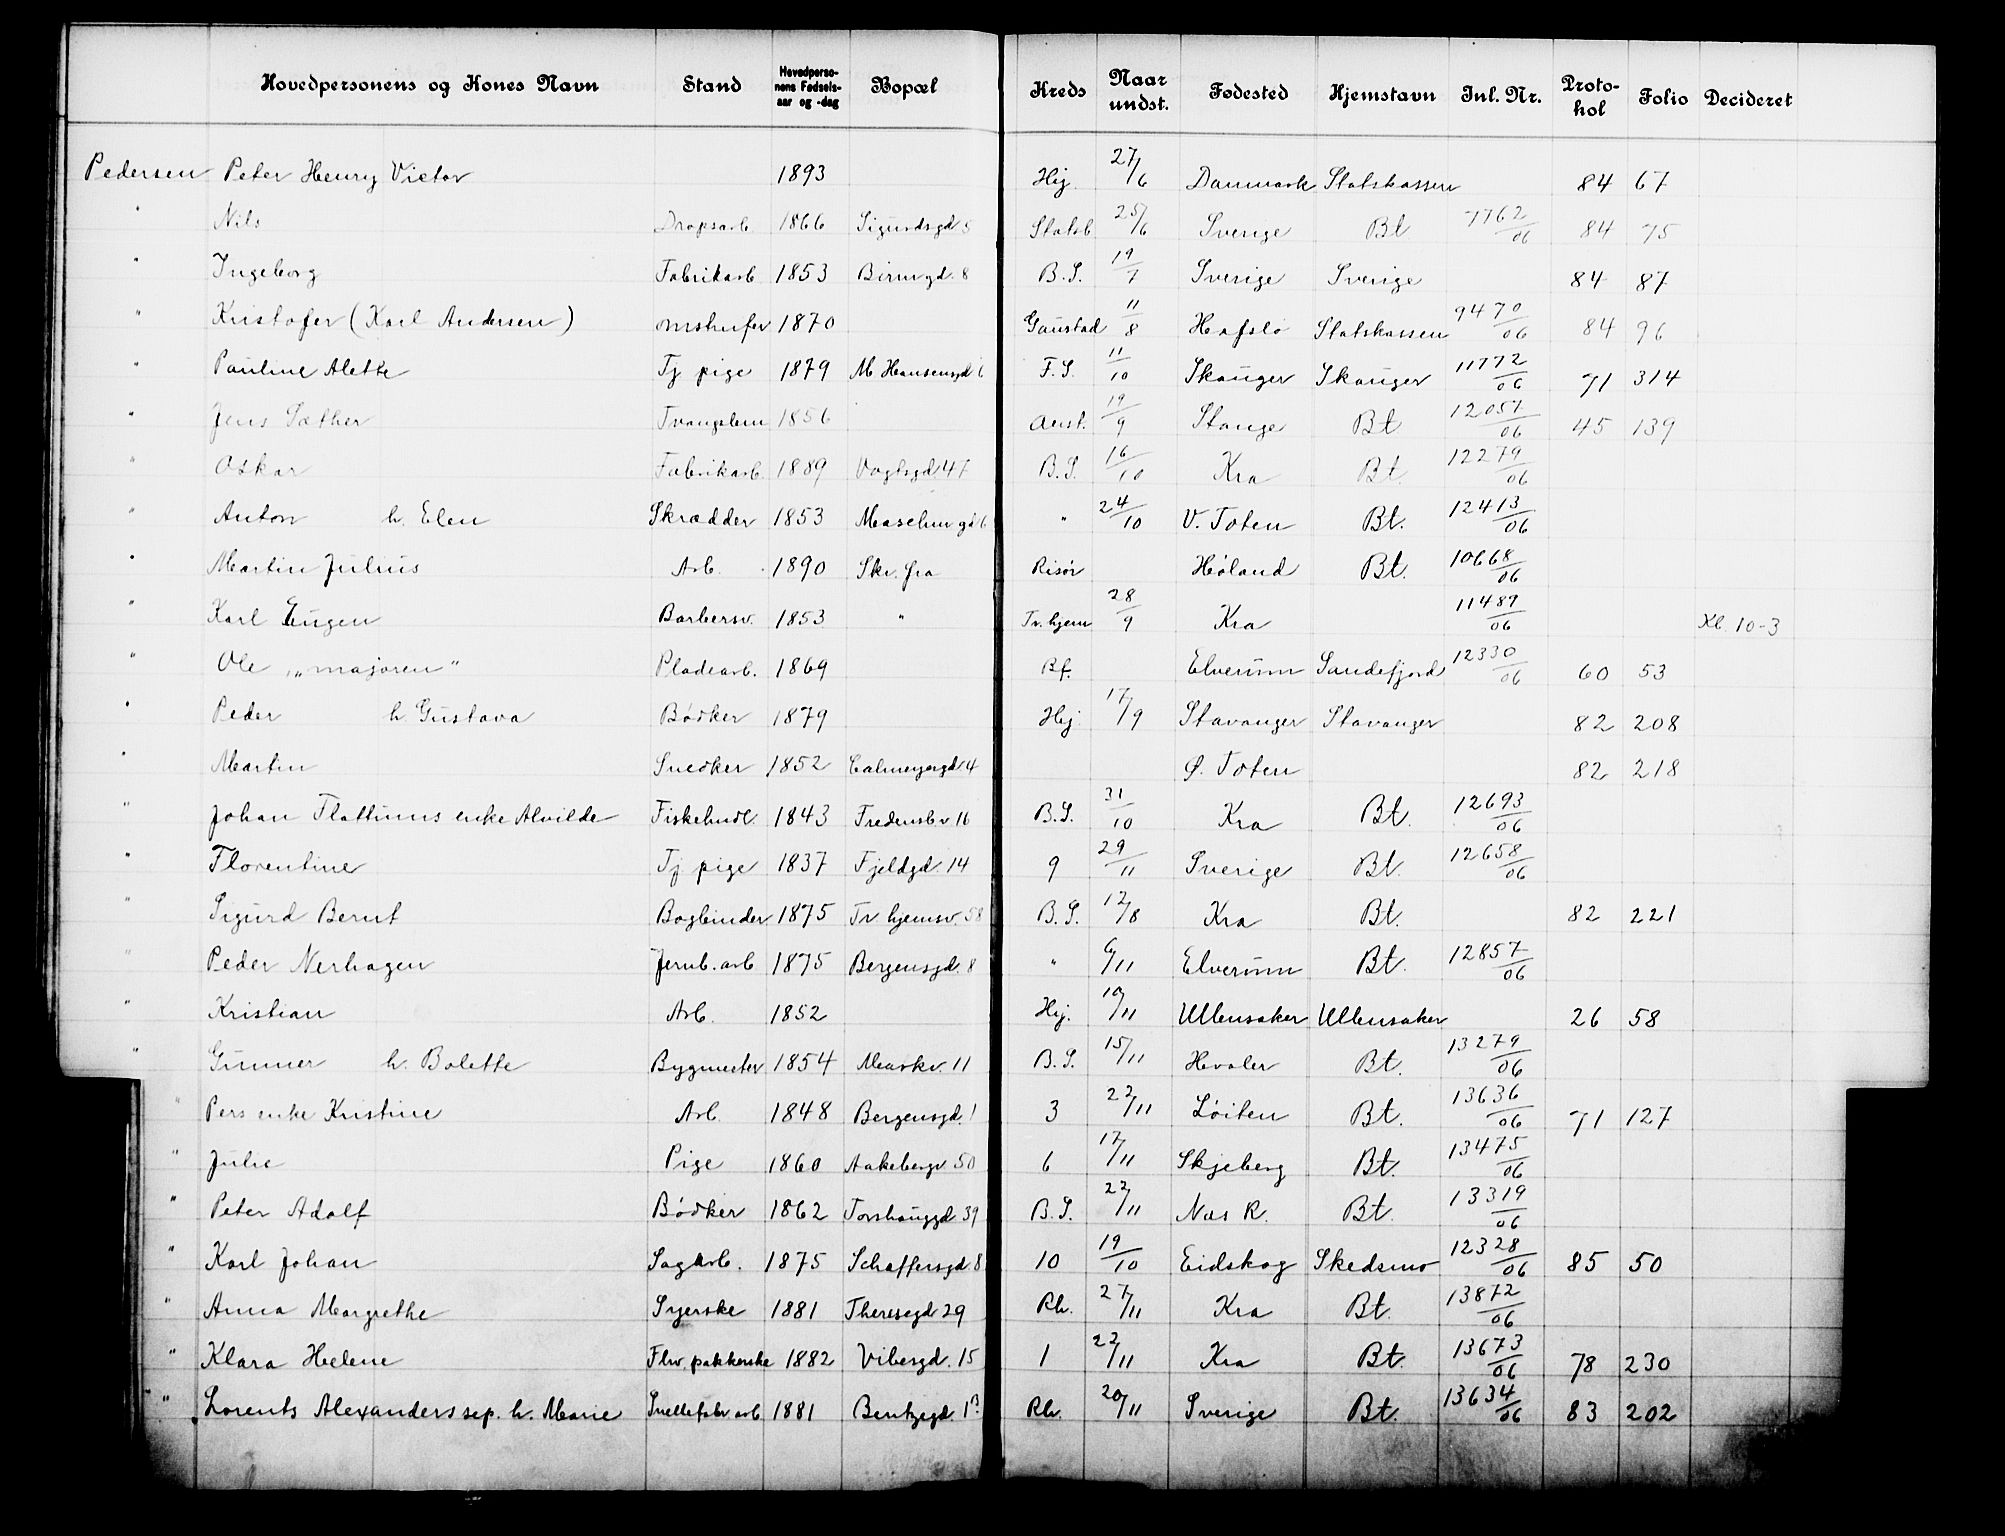 Hovedpersonens og Kones Navn Stand Hovedpersonens Fødselsaar og -dag Bopæl Kreds Naar undst. Fødested Hjemstavn Inl. Nr. Protokol Folio Decideret
Pedersen Peter Henry Victor 1893 Hj. 27/6 Danmark Statskassen 84 67
" Nils Dropsarb. 1866 Sigurdsgd. 5 Statsb. 25/6 Sverige Bt 7762/06 84 75
" Ingeborg Fabrikarb. 1853 Birmgd. 8 B.S. 19/7 Sverige Sverige 84 87
" Kristofer (Karl Andersen) omstreifer 1870 Gaustad 11/8 Hafslo Statskassen 9470/06 84 96
" Pauline Alette Tj pige 1879 M Hansensgd 6 F.S. 11/10 Skauger Skauger 11772/06 71 314
" Jens Sæther Tvangslem 1856 Anst. 19/9 Stange Bt 12057/06 45 139
" Oskar Fabrikarb. 1889 Vogtsgd. 47 B.S. 16/10 Kra Bt. 12279/06
" Anton h. Elen Skrædder 1853 Maschin gd 6 " 24/10 V. Toten Bt. 12413/06
" Martin Julius Arb. 1890 Skr. fra Risør Høland Bt. 10668/06
" Karl Eugen Barbersv. 1853 " Tv. hjem 28/9 Kra 11489/06 Kl. 10-3
" Ole „majoren" Pladearb. 1869 Bf. Elverum Sandefjord 12330/06 60 53
" Peder h. Gustava Bødker 1879 Hj. 17/9 Stavanger Stavanger 82 208
" Martin Snedker 1852 Calmeyergd. 4 Ø. Toten 82 218
" Johan Flattums enke Alvilde Fiskehndl. 1843 Fredensbv. 16 B.S. 31/10 Kra Bt. 12693/06
" Florentine Tj pige 1837 Fjeldgd. 14 9 29/11 Sverige Bt. 12658/06
" Sigurd Bernt Bogbinder 1875 Tv. hjemsv. 58 B.S. 17/8 Kra Bt. 82 221
" Peder Nerhagen Jernb. arb 1875 Bergensgd. 8 " 6/11 Elverum Bt. 12857/06
" Kristian Arb. 1852 Hj. 10/11 Ullensaker Ullensaker 26 58
" Gunner h. Bolette Bygmester 1854 Markv. 11 B.S. 15/11 Hvaler Bt. 13279/06
" Pers enke Kristine Arb. 1848 Bergensgd. 1 3 22/11 Løiten Bt. 13636/06 71 127
" Julie Pige 1860 Aakebergv. 50 6 17/11 Skjeberg Bt. 13475/06
" Peter Adolf Bødker 1862 Torshauggd. 39 B.S. 22/11 Nes R. Bt. 13319/06
" Karl Johan Sagarb. 1875 Schaffersgd. 8 10 19/10 Eidskog Skedsmo 12328/06 85 50
" Anna Margrethe Syerske 1881 Theresegd 29 Rh. 27/11 Kra Bt. 13872/06
" Klara Helene Flw. pakkerske 1882 Vibesgd. 15 1 22/11 Kra Bt. 13673/06 78 230
" Lorents Alexanders sep. h. Marie Snellefabr arb 1881 Bentzegd 1B Rh. 20/11 Sverige Bt. 13634/06 83 202